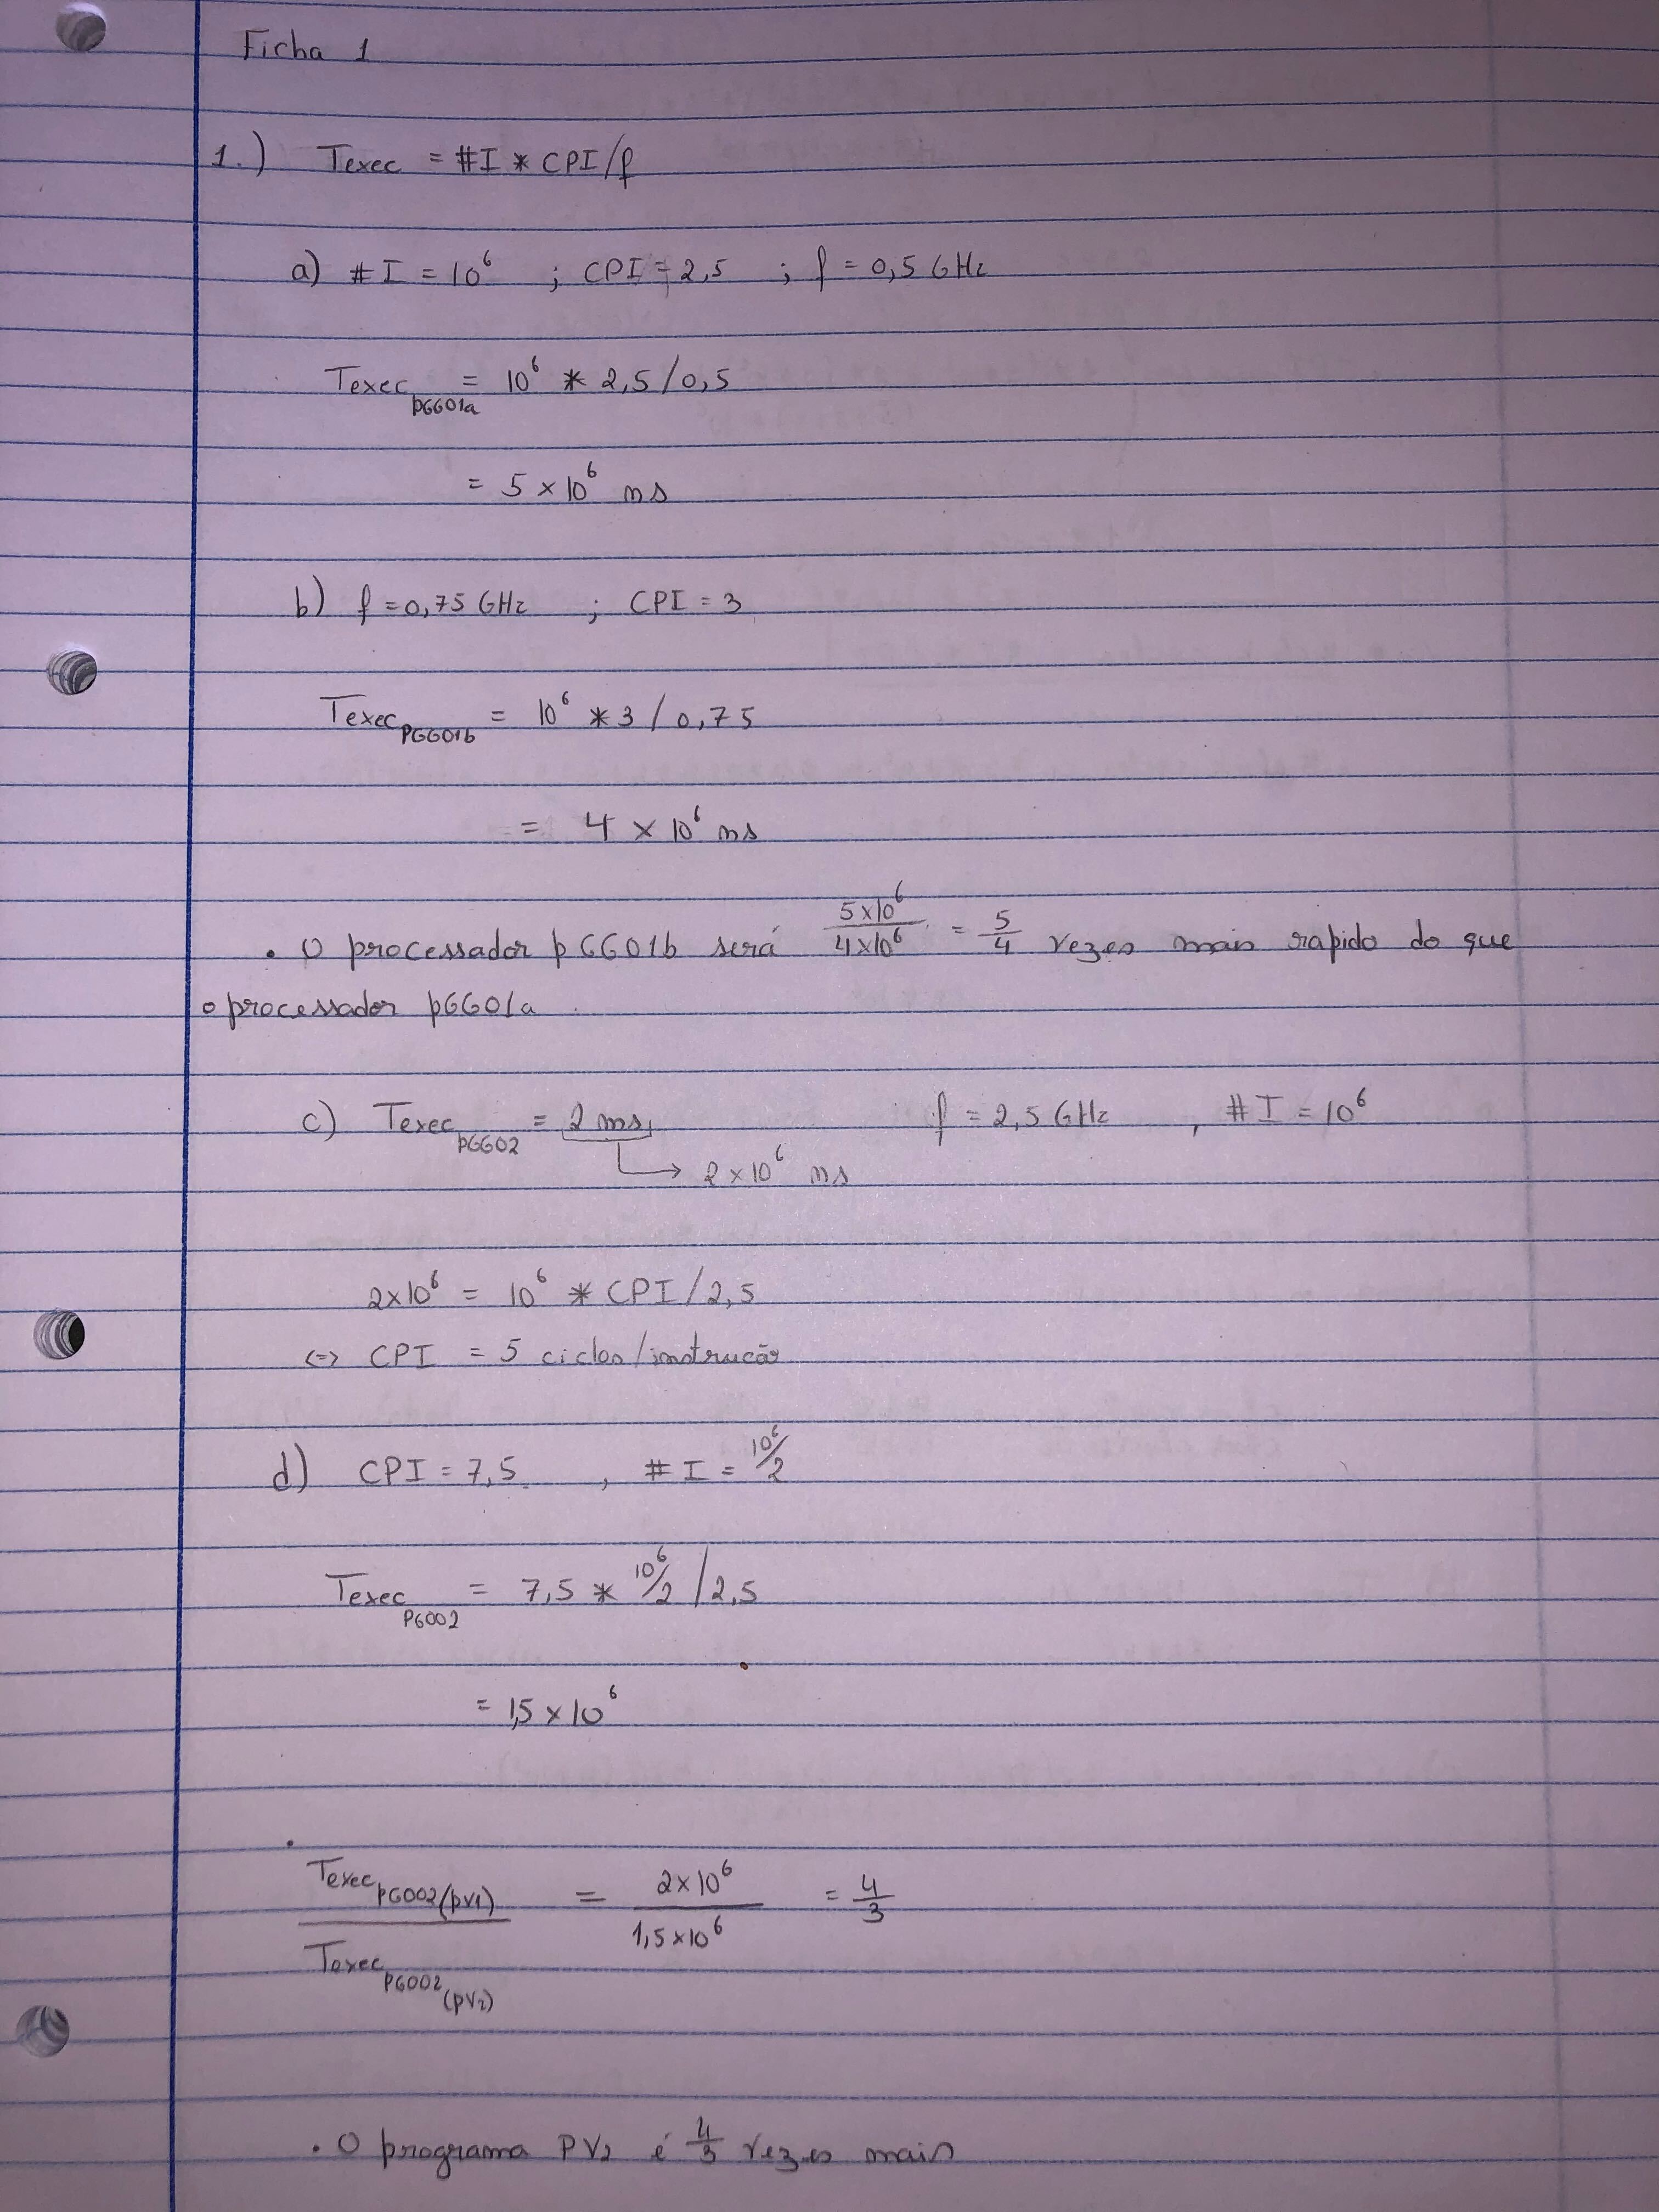 Ficha 1
1.) Texec = #I * CPI/f
a) #I = 10⁶ ; CPI = 2,5 ; f = 0,5 GHz
Texec pGG01a = 10⁶ * 2,5/0,5
= 5 × 10⁶ ns
b) f = 0,75 GHz ; CPI = 3
Texec PGG01b = 10⁶ * 3 / 0,75
= 4 × 10⁶ ns
• O processador pGG01b será 5×10⁶/4×10⁶ = 5/4 vezes mais rapido do que
o processador pGG01a
c) Texec pGG02 = 2 ms, f = 2,5 GHz , #I = 10⁶
→ 2 × 10⁶ ns
2×10⁶ = 10⁶ * CPI/2,5
<=> CPI = 5 ciclos/instrucão
d) CPI = 7,5 , #I = 10⁶/2
Texec PG002 = 7,5 * 10⁶/2 / 2,5
= 1,5 × 10⁶
Texec pG002(pv1) / Texec PG002(pv2) = 2×10⁶ / 1,5×10⁶ = 4/3
• O programa PV2 é 4/3 vezes mais